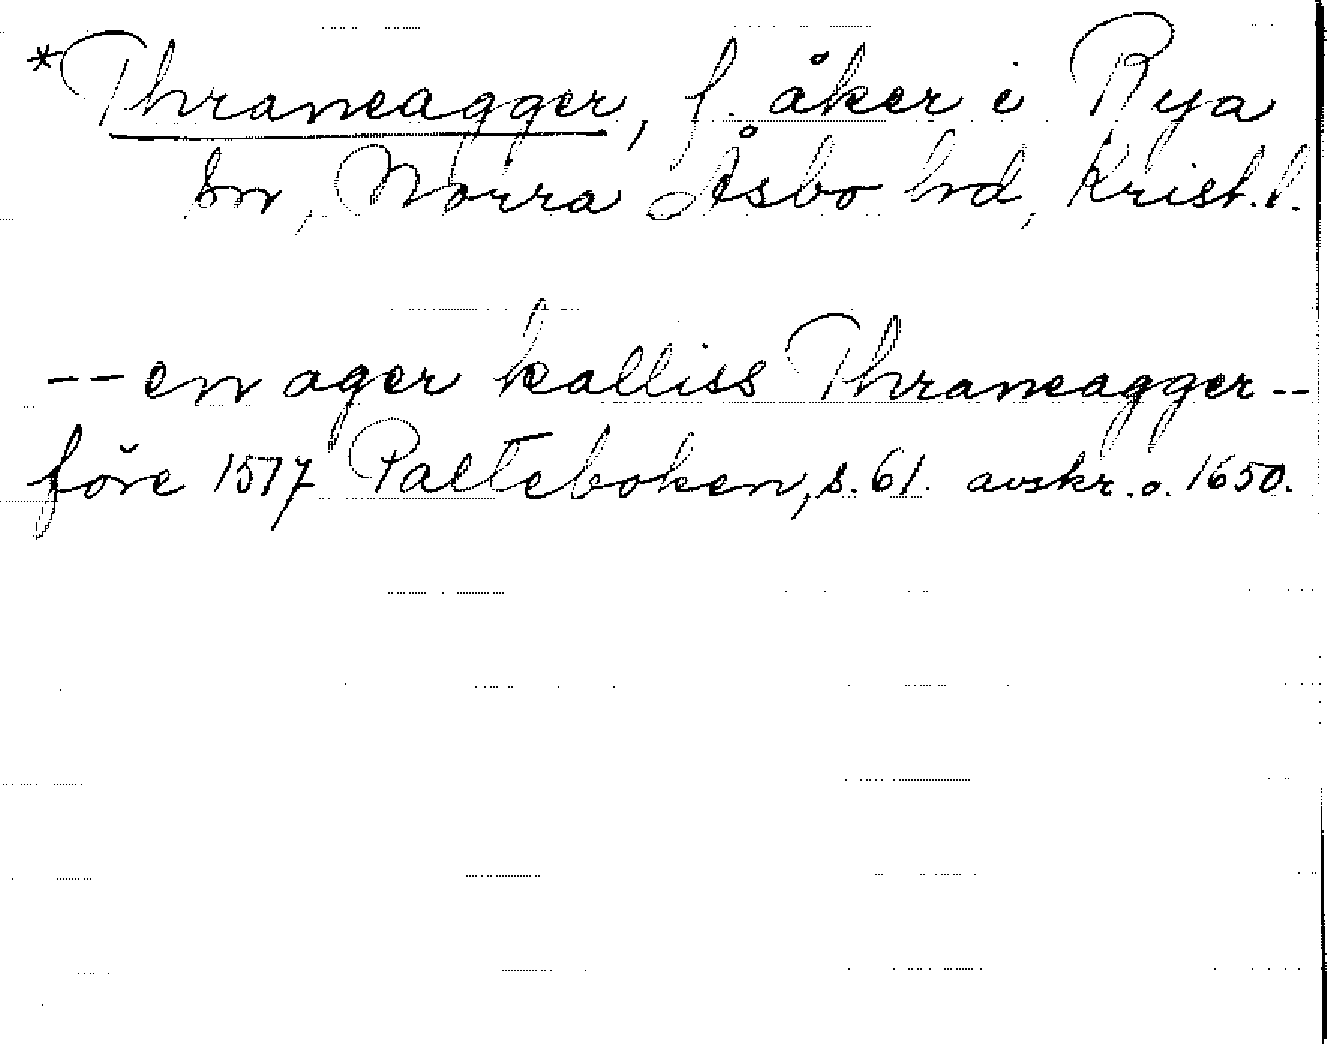 *Thraneagger, f. åker i Rya
sn, Norra Åsbo hd, Krist.l.
-- en ager kalliss Thraneagger --
före 1577 Palteboken, s. 61. avskr. o. 1650.